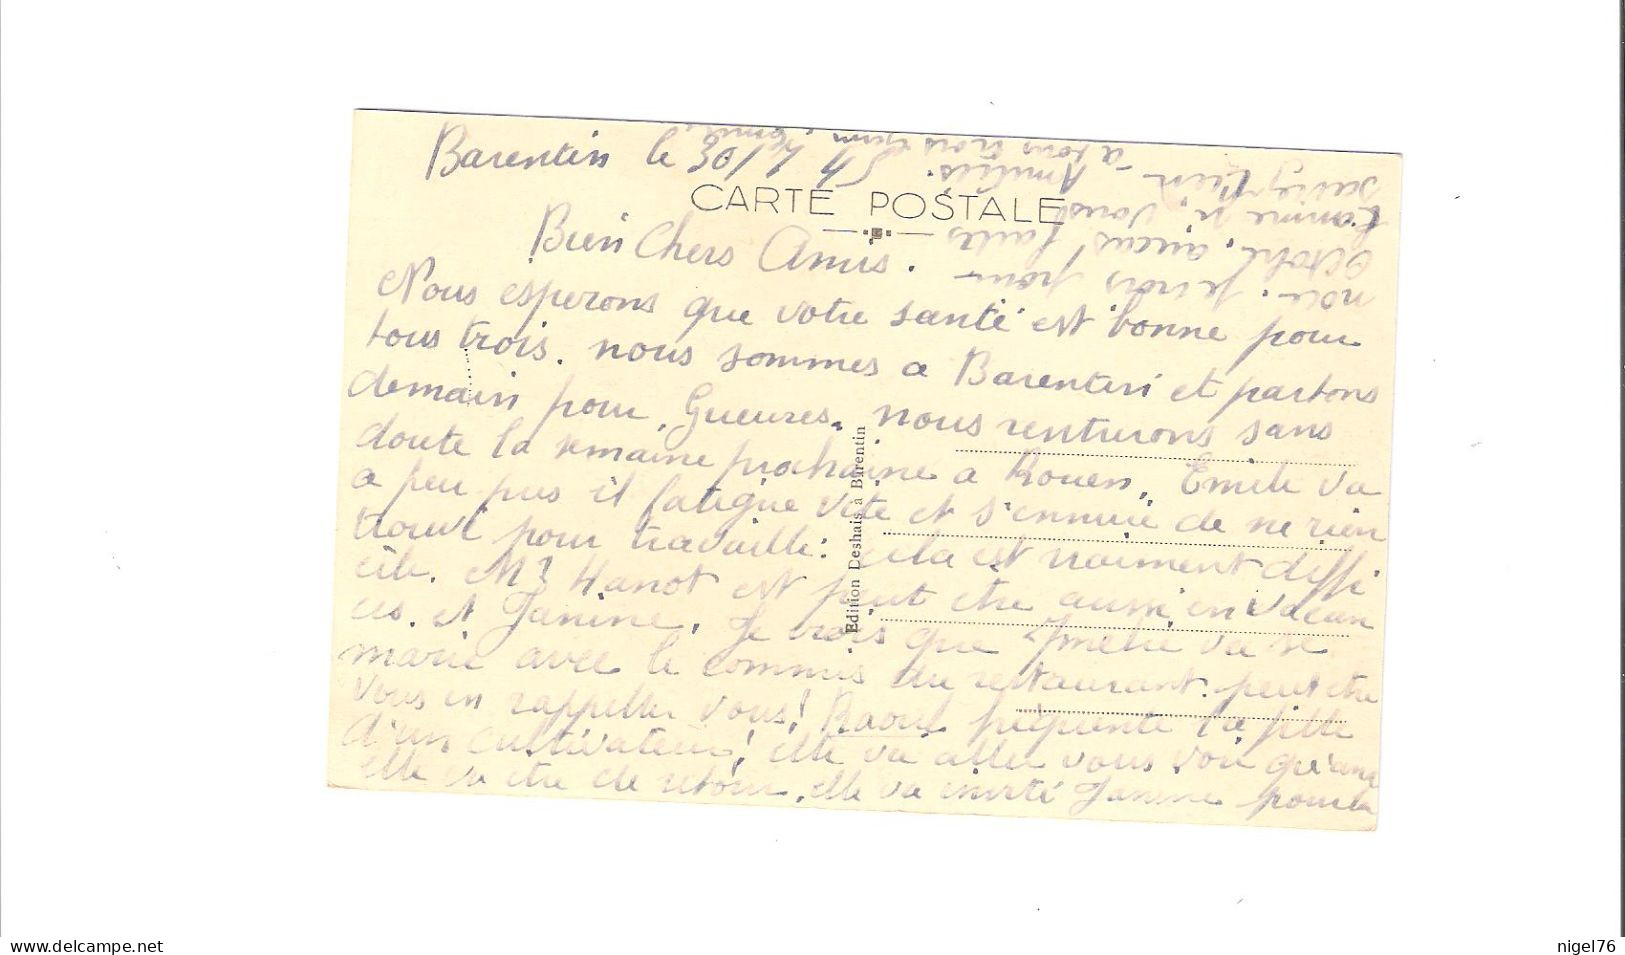 Barentin le 30/7 45
CARTE POSTALE
Bien Chers Amis.
Nous esperons que votre santé est bonne pour
tous trois. nous sommes a Barentin et partons
demain pour Gueures. nous rentrerons sans
doute la semaine prochaine a Rouen,, Emile va
a peu pres il fatigue vite et s'ennuie de ne rien
trouvé pour travaillé: cela est vraiment diffi
cile. Mr Hanot est peut etre aussi en vacan
ces. et Janine. Je crois que va se
marie avec le commis du restaurant. peut etre
vous en rappeller vous! Raoul fréquente la fille
d'un cultivateur! elle va aller vous voir quand
elle va etre de retour, elle va invité Janine pour la
noce. Je crois pour
octobre. aucas faites
comme si vous
saviez rien - Amitiés.
a tous trois
Edition Deshais à Barentin
www.delcampe.net
nigel76